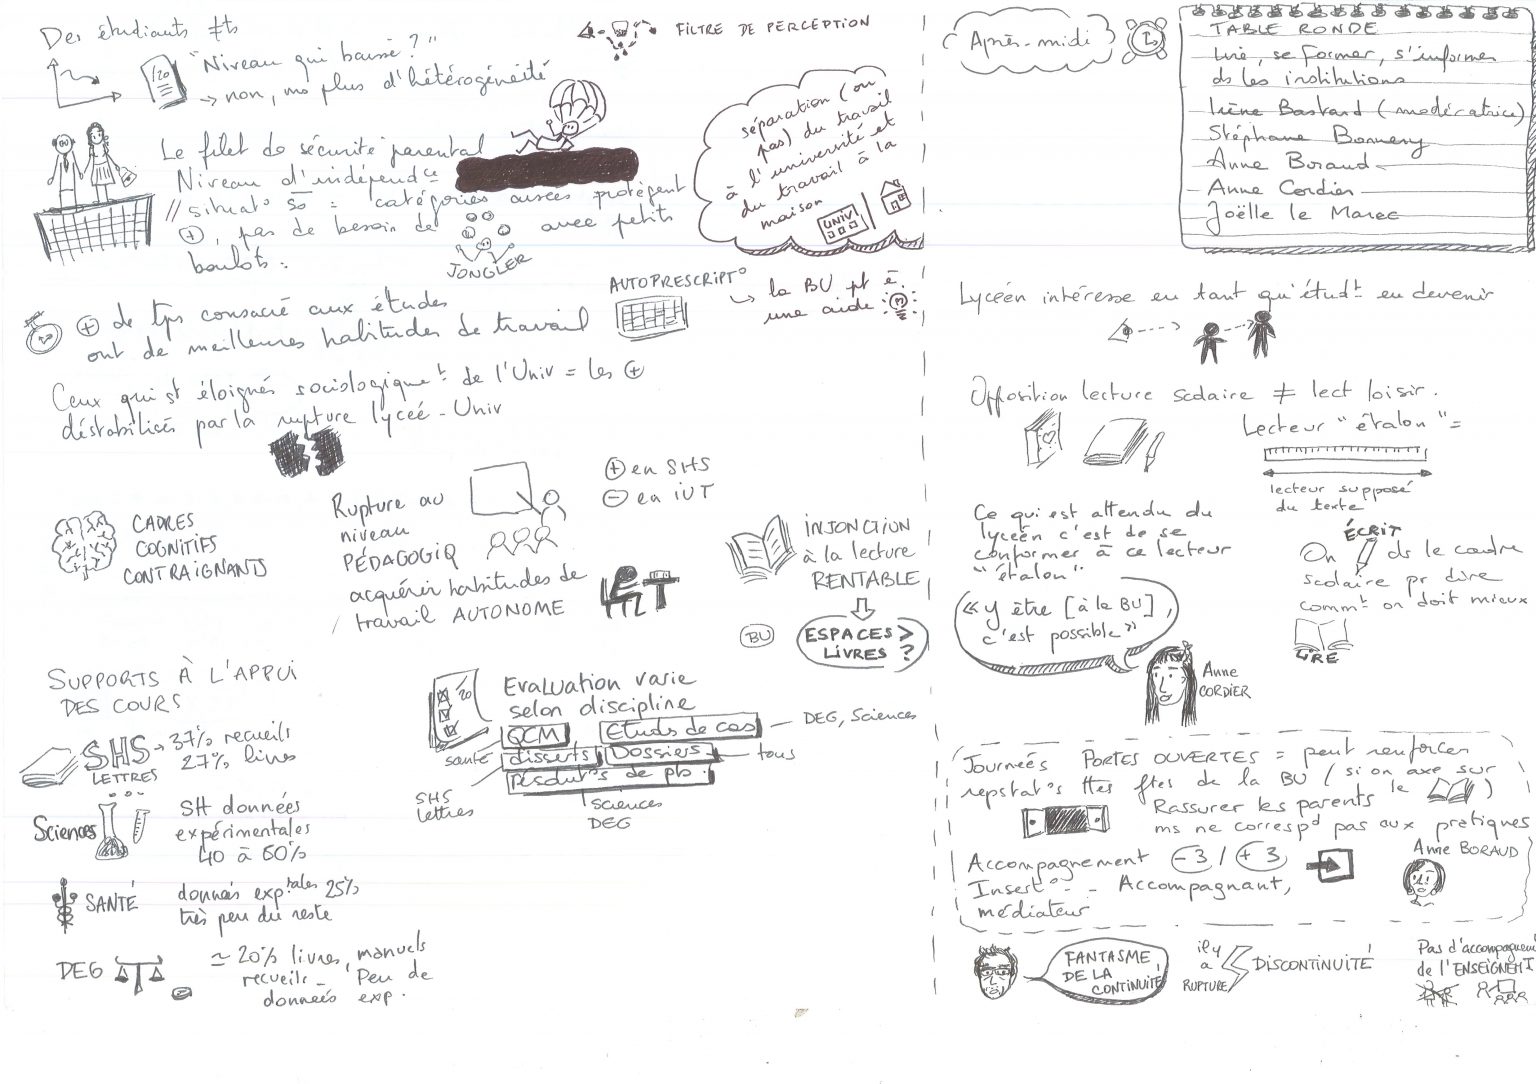 Des étudiants ≠ts
/20
"Niveau qui baisse ?"
→ non, ms plus d'hétérogénéité
FILTRE DE PERCEPTION
Le filet de sécurité parental
Niveau d'indépend^ce
// situat° so =
catégories aisées protègent
⊕, pas de besoin de
avec petits
boulots.
JONGLER
séparation (ou
pas) du travail
à l'université et
du travail à la
maison
UNIV
⊕ de tps consacré aux études
ont de meilleures habitudes de travail
AUTOPRESCRIPT°
↳ la BU pt ê
une aide
Ceux qui st éloignés sociologique^t de l'Univ = les ⊕
déstabilisés par la rupture lycée - Univ
CADRES
COGNITIFS
CONTRAIGNANTS
Rupture au
niveau
PÉDAGOGIQ
acquérir habitudes de
travail AUTONOME
⊕ en SHS
⊖ en IUT
INJONCTION
à la lecture
RENTABLE
BU
ESPACES >
LIVRES ?
SUPPORTS À L'APPUI
DES COURS
SHS → 37% recueils
LETTRES 27% livres
Sciences
SH données
expérimentales
40 à 60%
SANTÉ
données exp^tales 25%
très peu du reste
DEG
≃ 20% livres, manuels
recueils - Peu de
données exp.
/20
Evaluation varie
selon discipline
QCM
Etuds de cas
DEG, Sciences
santé
disserts
Dossiers
tous
résolut°s de pb.
SHS
lettres
Sciences
DEG
Après-midi
TABLE RONDE
Lire, se former, s'informer
ds les institutions
Irène Bastard (modératrice)
Stéphane Bonnery
Anne Boraud
Anne Cordier
Joëlle le Marec
Lycéen intéresse en tant qu'étud^t en devenir
Opposition lecture scolaire ≠ lect loisir.
Lecteur "étalon" =
lecteur supposé
du texte
Ce qui est attendu du
lycéen c'est de se
conformer à ce lecteur
"étalon"
ÉCRIT
On ds le cadre
scolaire pr dire
comm^t on doit mieux
LIRE
« Y être [à la BU],
c'est possible »
Anne
CORDIER
Journées PORTES OUVERTES = peut renforcer
repstat°s ttes ftes de la BU (si on axe sur
le )
Rassurer les parents
ms ne correspd pas aux pratiques
Accompagnement -3 / +3
Insert° - Accompagnant,
médiateur
Anne BORAUD
FANTASME
DE LA
CONTINUITÉ
il y
a
RUPTURE
DISCONTINUITÉ
Pas d'accompagnem^t
de l'ENSEIGNEM^T